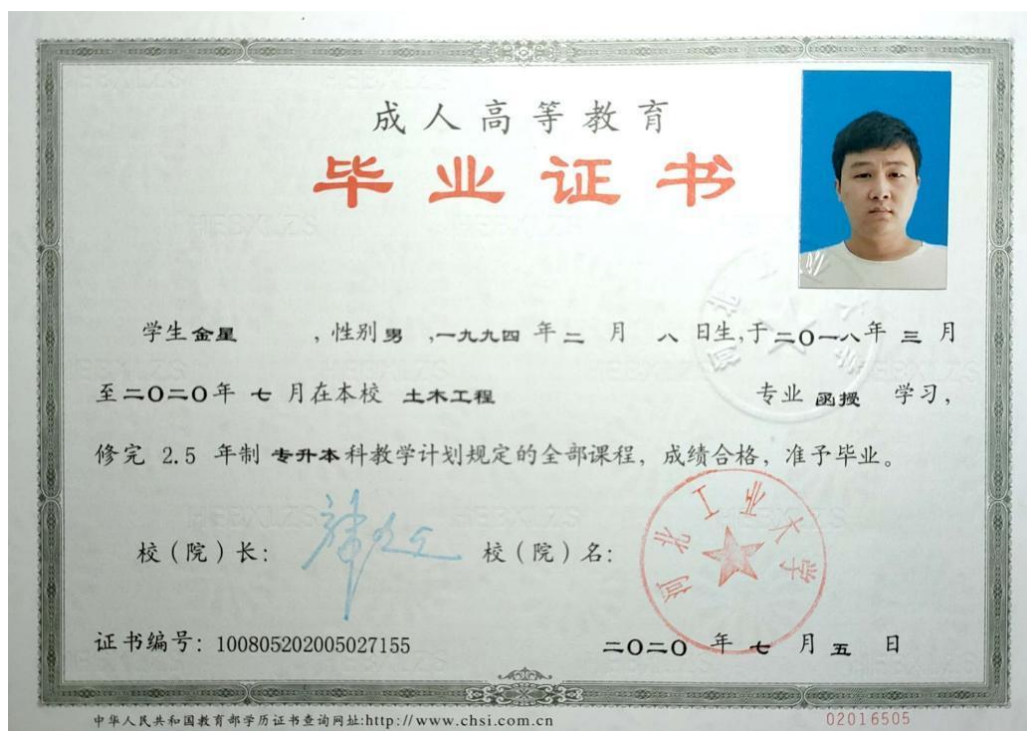 成人高等教育
毕业证书
学生金星,性别男,一九九四年二月八日生,于二〇一八年三月
至二〇二〇年七月在本校土木工程专业函授学习,
修完 2.5 年制专升本科教学计划规定的全部课程,成绩合格,准予毕业。
校(院)长: 校(院)名:
河北工业大学
证书编号: 100805202005027155 二〇二〇年七月五日
中华人民共和国教育部学历证书查询网址:http://www.chsi.com.cn 02016505